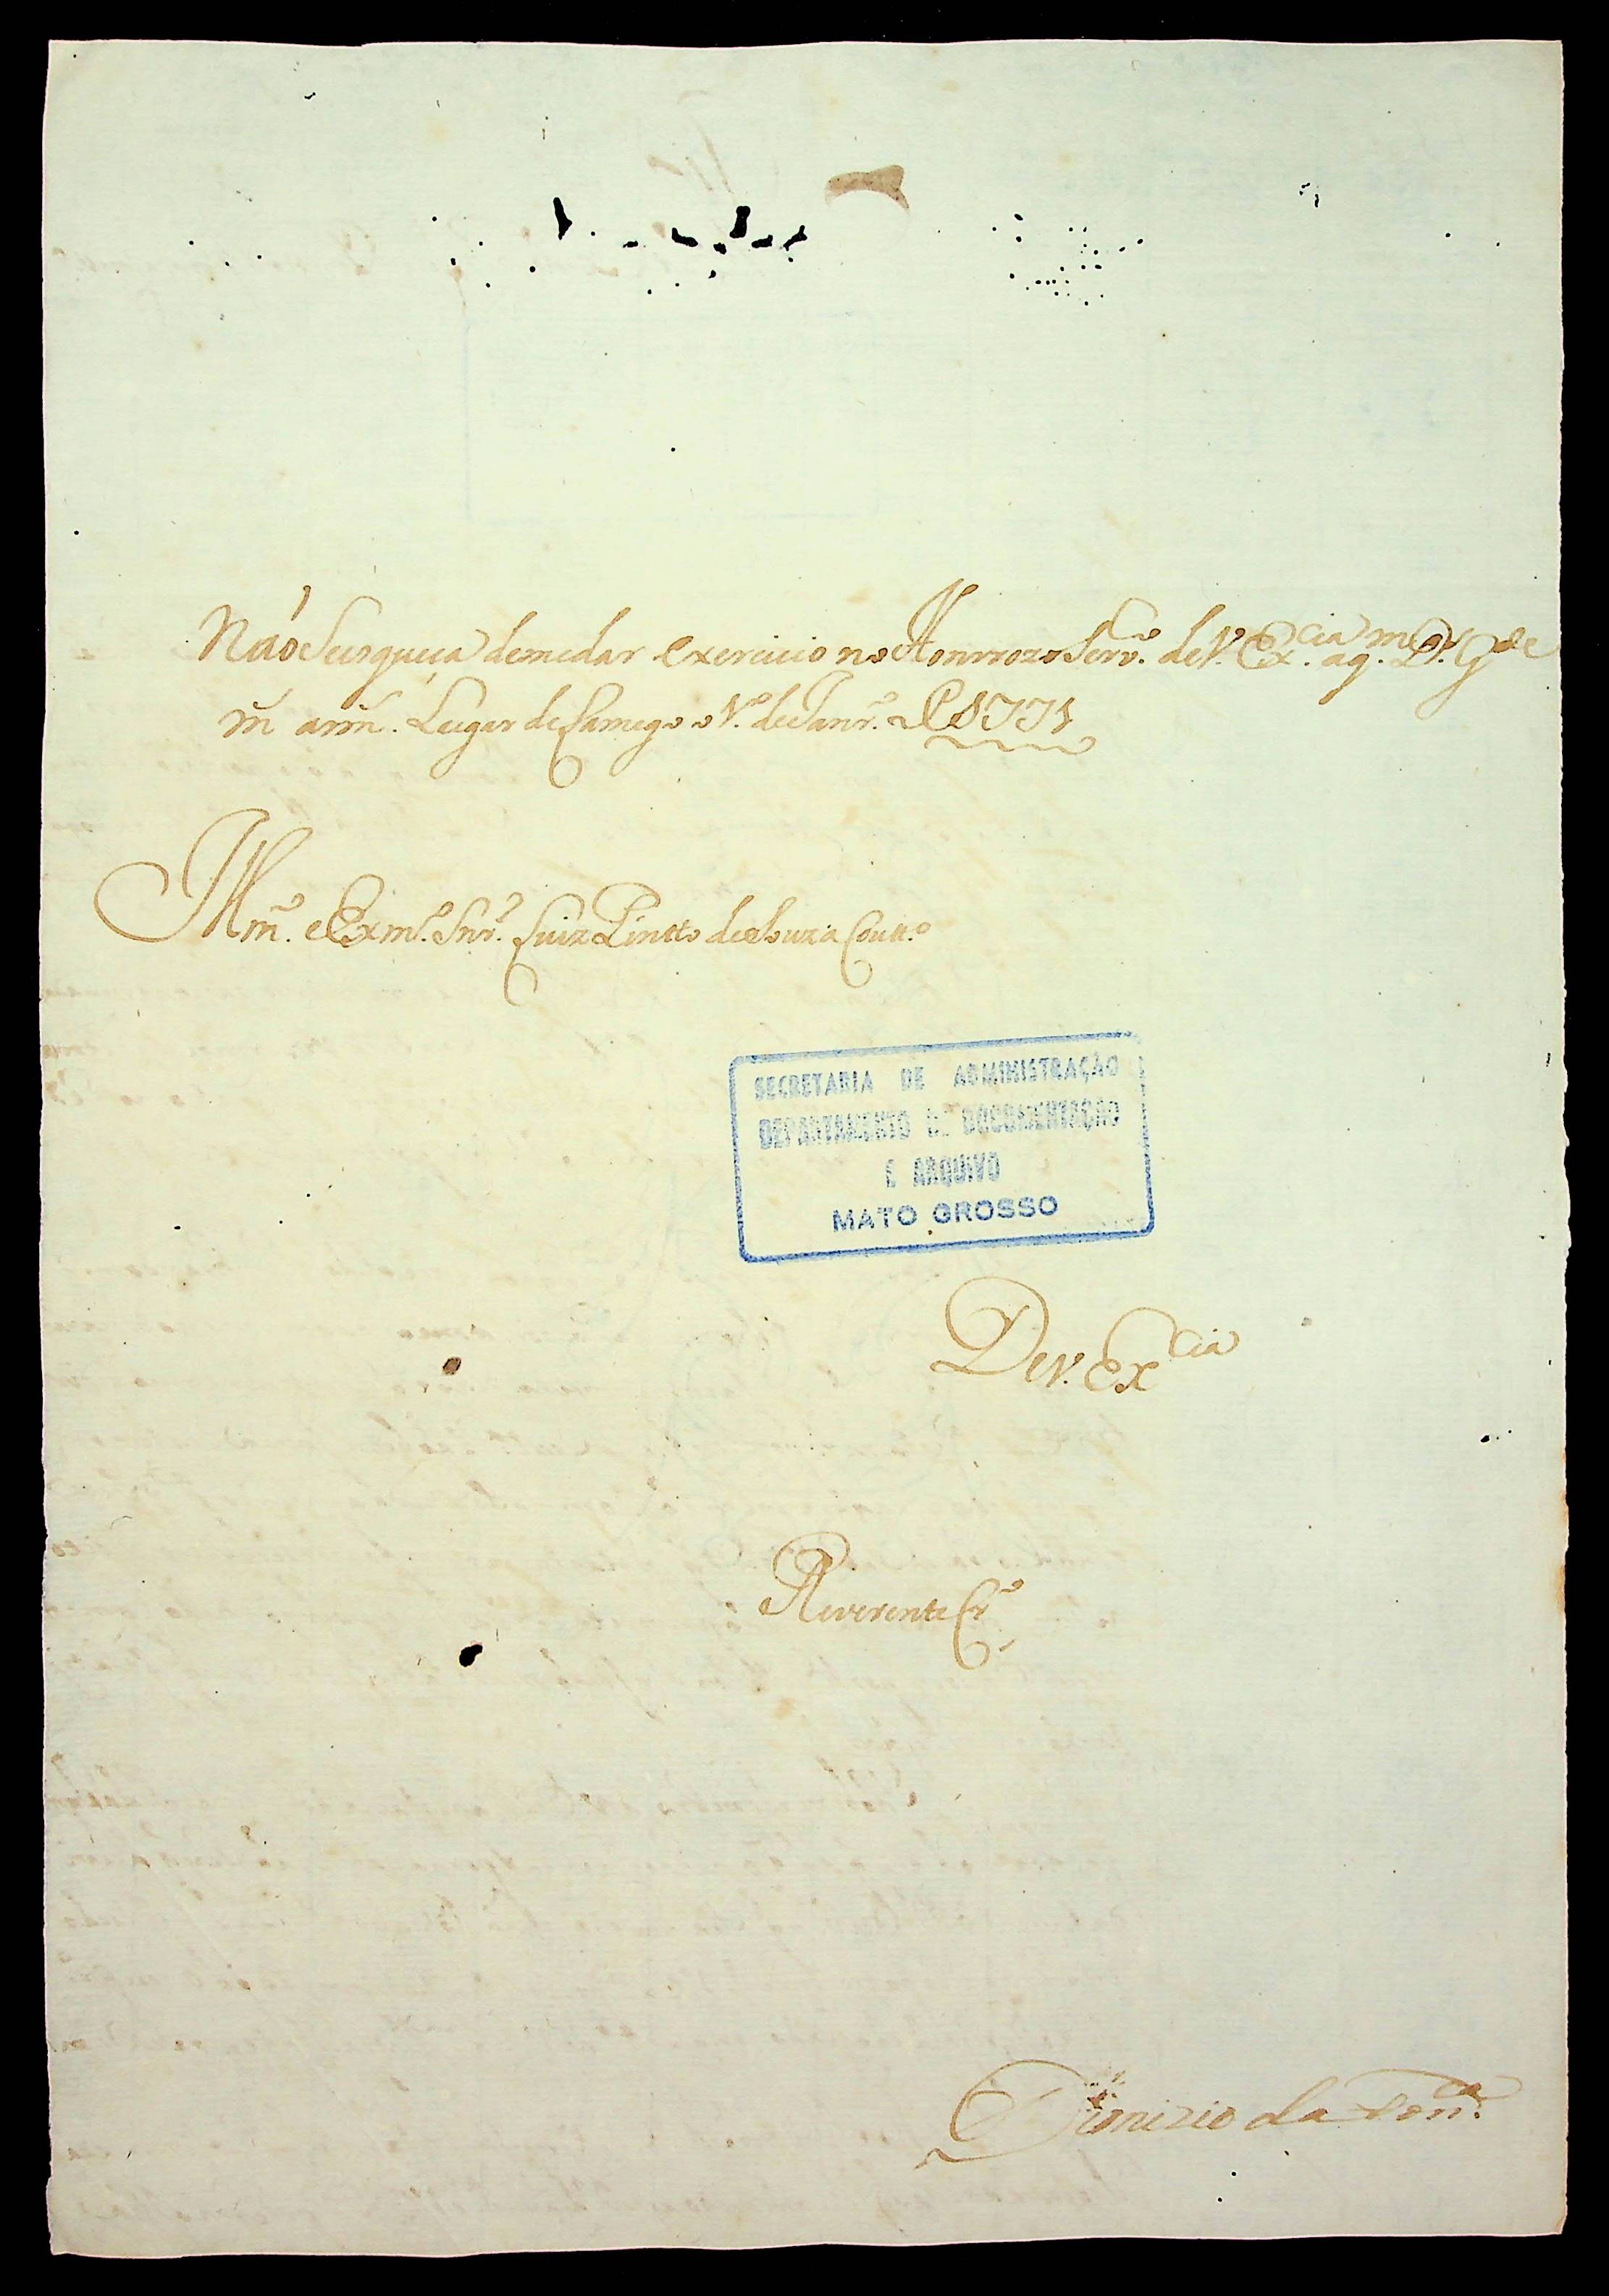 Naó Seesqueça demedar exercicio no Honrrozo Serv.º de V. Ex.cia aq.m D.s G.de
m̃ ann̄. Lugar de Lamego o 1.º de Janr.º de 1771
Illm.º e Exm.º Snr.º Luiz Pintto de Souza Coutt.º
SECRETARIA DE ADMINISTRAÇÃO
DEPARTAMENTO DE DOCUMENTAÇÃO
E ARQUIVO
MATO GROSSO
De V. Ex.cia
Reverente Cr.º
Dionizio da